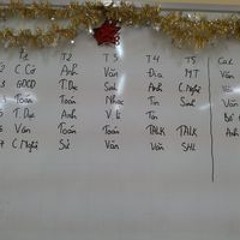 T2 T3 T4 T5 Ca
2 C.Cờ Anh Văn Địa MT Văn
3 GDCD T.Dục Sinh Anh C.Nghệ Văn
Toán Toán Nhạc Tin Sinh Văn
T.Dục Anh V.lí Tin
Văn Toán Toán TALK TALK Anh
7 C.Nghệ Sử Văn Văn SHL